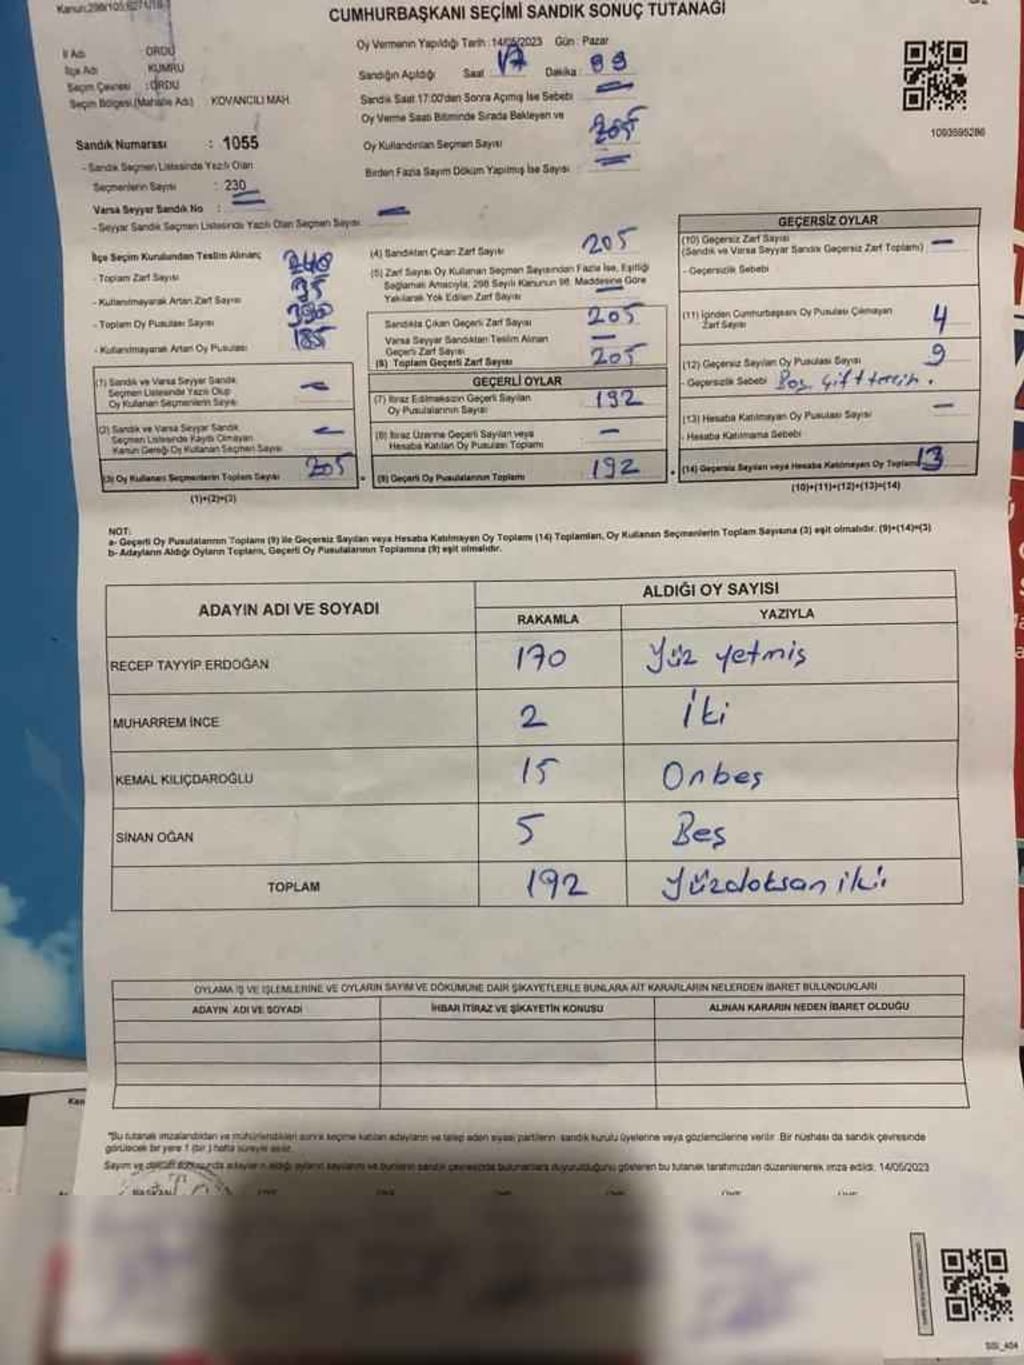 Kanun:298/105;6271/18-1
CUMHURBAŞKANI SEÇİMİ SANDIK SONUÇ TUTANAĞI
Oy Vermenin Yapıldığı Tarih :14/05/2023 Gün : Pazar
İl Adı : ORDU
İlçe Adı : KUMRU
Seçim Çevresi : ORDU
Seçim Bölgesi (Mahalle Adı) : KOVANCILI MAH.
Sandık Numarası : 1055
- Sandık Seçmen Listesinde Yazılı Olan
Seçmenlerin Sayısı : 230
Varsa Seyyar Sandık No : —
- Seyyar Sandık Seçmen Listesinde Yazılı Olan Seçmen Sayısı —
Sandığın Açıldığı Saat 17 Dakika :
Sandık Saat 17:00'den Sonra Açmış İse Sebebi —
Oy Verme Saati Bitiminde Sırada Bekleyen ve
Oy Kullandırılan Seçmen Sayısı 205
Birden Fazla Sayım Döküm Yapılmış İse Sayısı : —
1093595286
İlçe Seçim Kurulundan Teslim Alınan;
- Toplam Zarf Sayısı 240
- Kullanılmayarak Artan Zarf Sayısı 35
- Toplam Oy Pusulası Sayısı
- Kullanılmayarak Artan Oy Pusulası 185
(1) Sandık ve Varsa Seyyar Sandık
Seçmen Listesinde Yazılı Olup
Oy Kullanan Seçmenlerin Sayısı —
(2) Sandık ve Varsa Seyyar Sandık
Seçmen Listesinde Kayıtlı Olmayan
Kanun Gereği Oy Kullanan Seçmen Sayısı —
(3) Oy Kullanan Seçmenlerin Toplam Sayısı 205
(1)+(2)=(3)
(4) Sandıktan Çıkan Zarf Sayısı 205
(5) Zarf Sayısı Oy Kullanan Seçmen Sayısından Fazla İse, Eşitliği
Sağlamak Amacıyla, 298 Sayılı Kanunun 98. Maddesine Göre
Yakılarak Yok Edilen Zarf Sayısı —
Sandıkta Çıkan Geçerli Zarf Sayısı 205
Varsa Seyyar Sandıktan Teslim Alınan
Geçerli Zarf Sayısı —
(6) Toplam Geçerli Zarf Sayısı 205
GEÇERLİ OYLAR
(7) İtiraz Edilmeksizin Geçerli Sayılan
Oy Pusulalarının Sayısı 192
(8) İtiraz Üzerine Geçerli Sayılan veya
Hesaba Katılan Oy Pusulası Toplamı —
(9) Geçerli Oy Pusulalarının Toplamı 192
GEÇERSİZ OYLAR
(10) Geçersiz Zarf Sayısı —
(Sandık ve Varsa Seyyar Sandık Geçersiz Zarf Toplamı)
- Geçersizlik Sebebi
(11) İçinden Cumhurbaşkanı Oy Pusulası Çıkmayan
Zarf Sayısı 4
(12) Geçersiz Sayılan Oy Pusulası Sayısı 9
- Geçersizlik Sebebi Boş, çift tercih.
(13) Hesaba Katılmayan Oy Pusulası Sayısı —
- Hesaba Katılmama Sebebi
(14) Geçersiz Sayılan veya Hesaba Katılmayan Oy Toplamı 13
(10)+(11)+(12)+(13)=(14)
NOT:
a- Geçerli Oy Pusulalarının Toplamı (9) ile Geçersiz Sayılan veya Hesaba Katılmayan Oy Toplamı (14) Toplamları, Oy Kullanan Seçmenlerin Toplam Sayısına (3) eşit olmalıdır. (9)+(14)=(3)
b- Adayların Aldığı Oyların Toplamı, Geçerli Oy Pusulalarının Toplamına (9) eşit olmalıdır.
ADAYIN ADI VE SOYADI
ALDIĞI OY SAYISI
RAKAMLA YAZIYLA
RECEP TAYYİP ERDOĞAN 170 Yüz yetmiş
MUHARREM İNCE 2 İki
KEMAL KILIÇDAROĞLU 15 Onbeş
SİNAN OĞAN 5 Beş
TOPLAM 192 Yüzdoksan iki
OYLAMA İŞ VE İŞLEMLERİNE VE OYLARIN SAYIM VE DÖKÜMÜNE DAİR ŞİKAYETLERLE BUNLARA AİT KARARLARIN NELERDEN İBARET BULUNDUKLARI
ADAYIN ADI VE SOYADI İHBAR İTİRAZ VE ŞİKAYETİN KONUSU ALINAN KARARIN NEDEN İBARET OLDUĞU
*Bu tutanak imzalandıktan ve mühürlendikten sonra seçime katılan adayların ve talep eden siyasi partilerin sandık kurulu üyelerine veya gözlemcilerine verilir. Bir nüshası da sandık çevresinde
görülecek bir yere 1 (bir) hafta süreyle asılır.
Sayım ve döküm sonucunda adayların aldığı oyların sayılarını ve bunların sandık çevresinde bulunanlara duyurulduğunu gösteren bu tutanak tarafımızdan düzenlenerek imza edildi. 14/05/2023
BAŞKAN